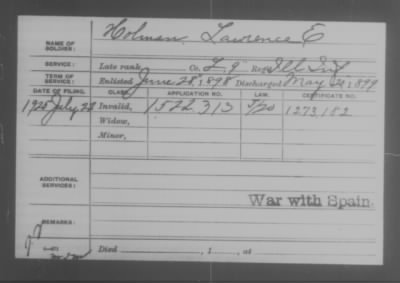 NAME OF SOLDIER: Holman, Lawrence E
SERVICE: Late rank, Co. L, 9" Reg't Ill. Inf
TERM OF SERVICE: Enlisted June 28", 1898 Discharged May 20, 1899
DATE OF FILING. CLASS. APPLICATION NO. LAW. CERTIFICATE NO.
1920 July 28 Invalid, 1522,313 1273,182
Widow,
Minor,
ADDITIONAL SERVICES:
War with Spain.
REMARKS:
Died , 1 , at